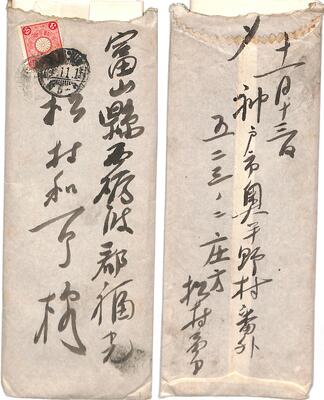 富山縣西礪波郡福光
松村和一郎様
11.1
十一月十三日
〆
神戸市奥平野村番外
五二三ノ二庄方
松村